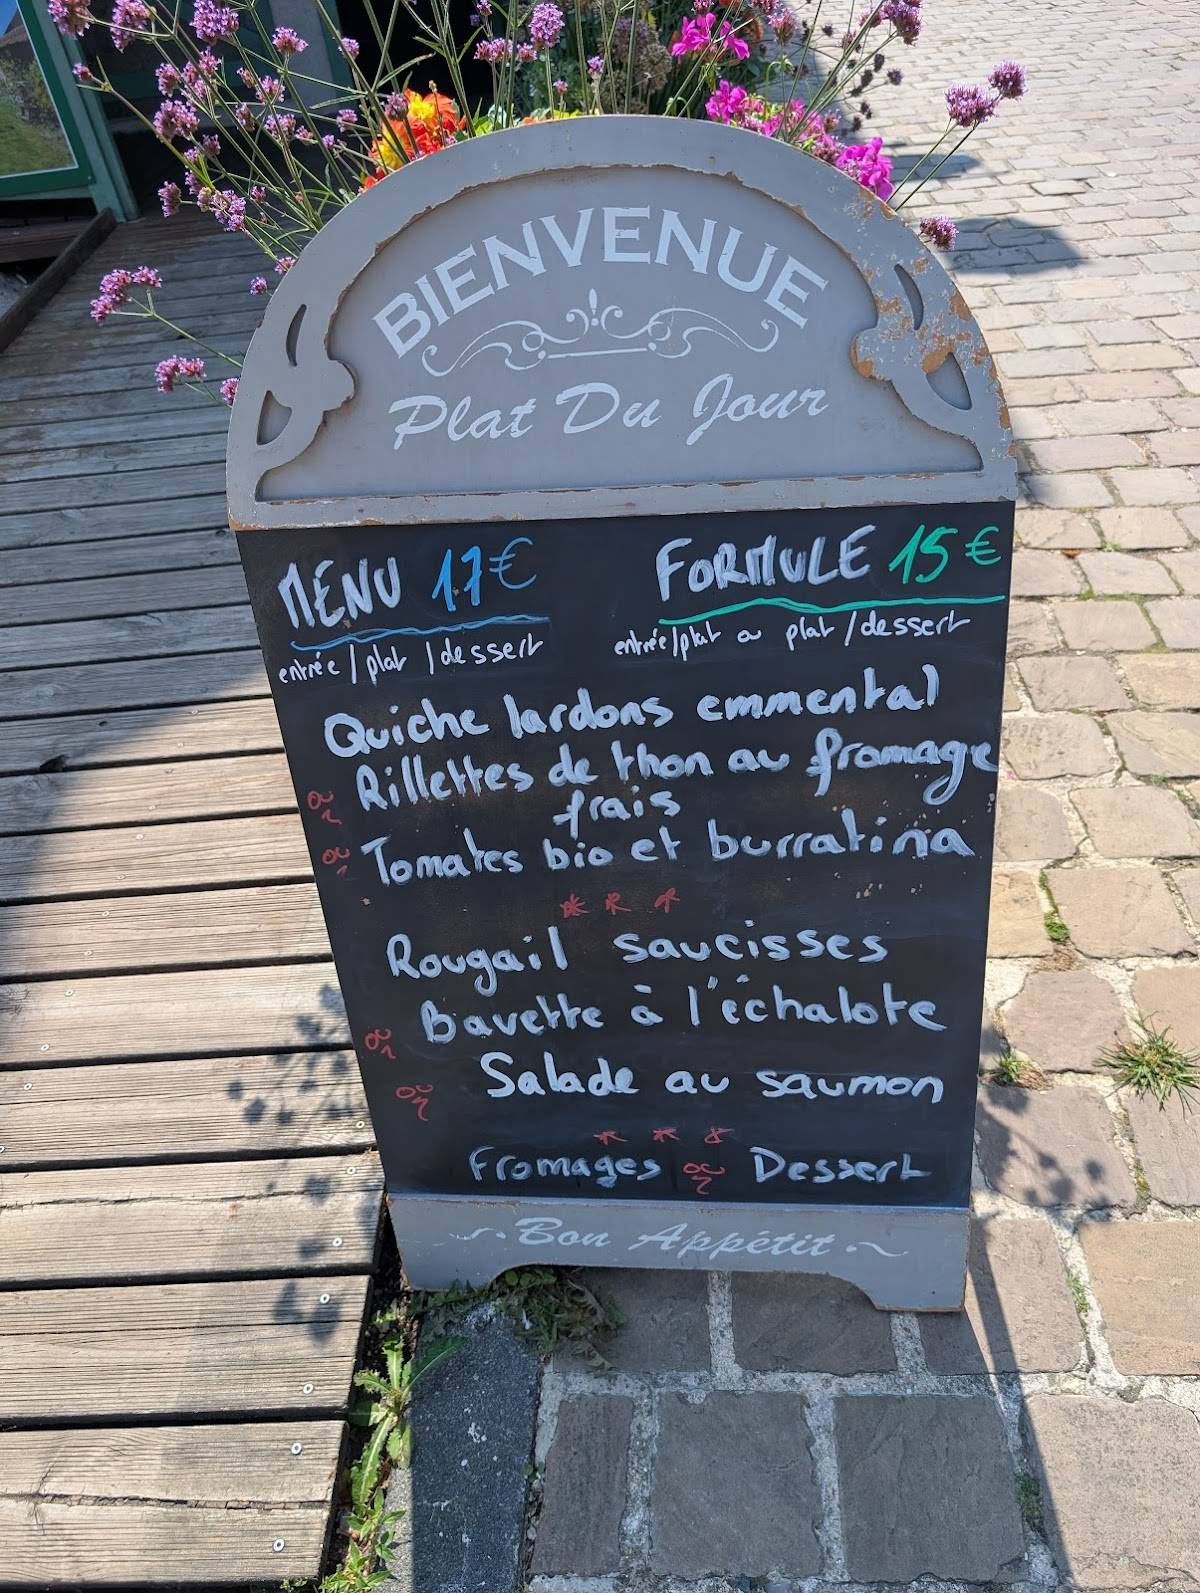 BIENVENUE
Plat Du Jour
MENU 17€
entrée / plat / dessert
FORMULE 15€
entrée/plat ou plat / dessert
Quiche lardons emmental
ou Rillettes de thon au fromage
frais
ou Tomates bio et burratina
***
Rougail saucisses
ou Bavette à l'échalote
ou Salade au saumon
***
Fromages ou Dessert
Bon Appétit